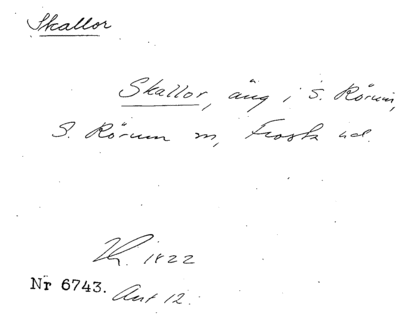 Skallor
Skallor, äng i S. Rörum,
S. Rörum sn, Frosta hd.
1822
Nr 6743. Akt 12.